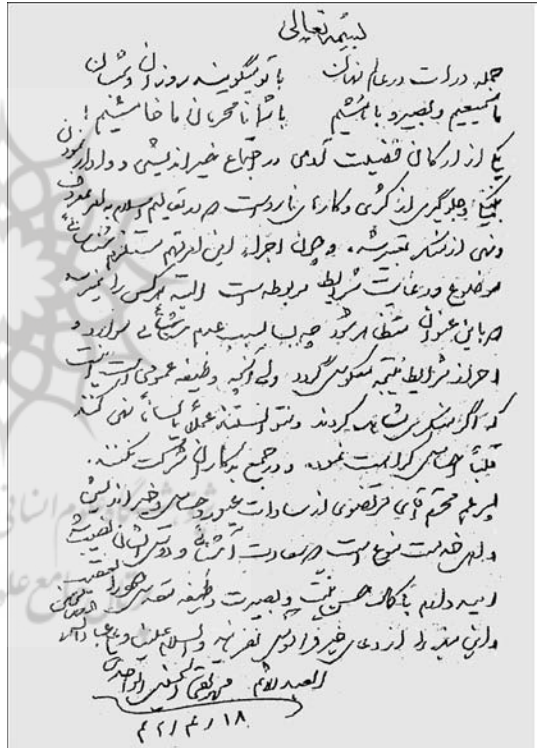 بسمه تعالی
جمله ذرات در عالم نهان با تو میگویند روزان و شبان
ما سمیعیم و بصیر و باهشیم با شما نامحرمان ما خامشیم!
یکی از ارکان فضیلت آدمی در اجتماع خیراندیشی و وادار نمودن
به نیکی و جلوگیری از کژی و کارهای نارواست که در تعالیم اسلام به امر بمعروف
و نهی از منکر تعبیر شده. و چون اجراء این امر مهم مستلزم شناسائی
موضوع و رعایت شرایط مربوطه است البته هر کس را نمیرسد
که باین عنوان متظاهر شود چه بسا بسبب عدم شناسائی موارد و
احراز شرایط نتیجه معکوس گردد ولی آنچه وظیفه عمومی است اینست
که اگر منکری مشاهده کردند و نتوانستند عملاً یا لساناً نهی کنند
قلباً احساس کراهت نموده و در جمع بدکاران شرکت نکنند.
محترم آقای مرتضوی از سادات غیور و حساس و خیراندیش
و اهل خدمت نوع است که سعادت آشنائی و دوستی ایشان نصیب شده
امید دارم با کمال حسن نیت و بصیرت وظیفه مقدس
را از دعای خیر فراموش نفرمایند والسلام علینا و علی عباد الله
الصالحین
العبد الاثم
۴۲/۴/۱۸